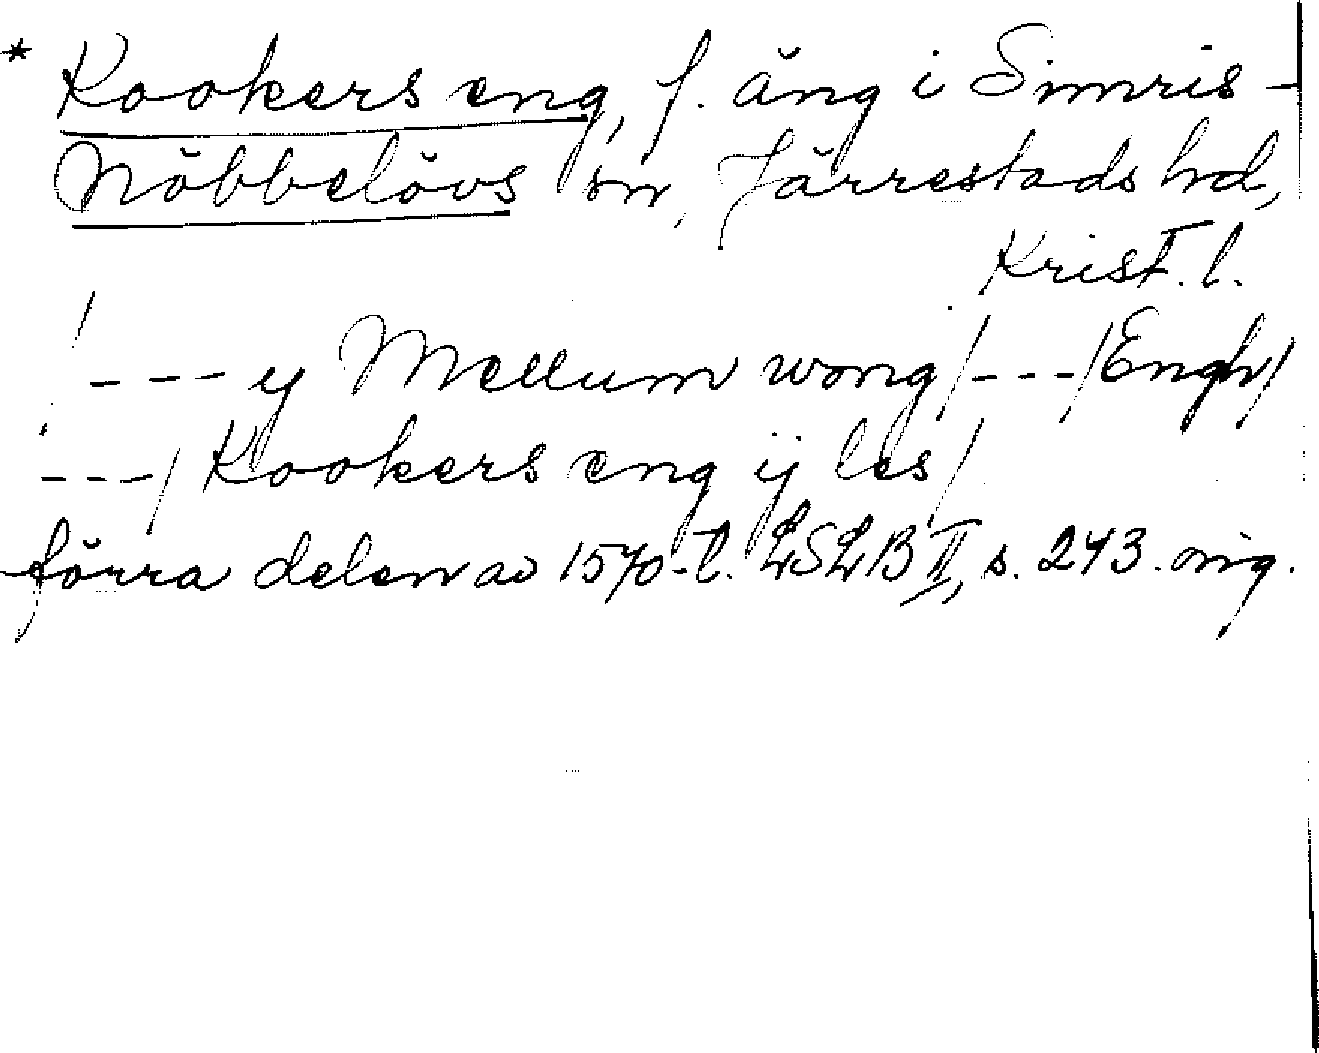 * Kookers eng, f. äng i Simris-
Nöbbelövs sn, Järrestads hd,
Krist. l.
/--- y Mellum wong/---/Engh/
---/Kookers eng ij les/
förra delen av 1570-t. LSLB II, s. 243. orig.